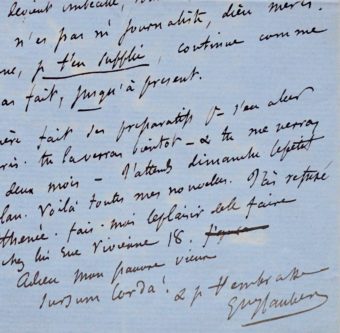 devient imbécile,
n'es pas ni journaliste, dieu merci.
je t'en supplie, continue comme
as fait, jusqu'à présent.
fait ses préparatifs p. s'en aller
tu la verras bientôt – & tu me verras
deux mois – J'attends dimanche le petit
Voilà toutes mes nouvelles. J'ai refusé
fais-moi le plaisir de le faire
chez lui Rue Vivienne 18.
Adieu mon pauvre vieux
Sursum corda! & je t'embrasse
Gve Flaubert